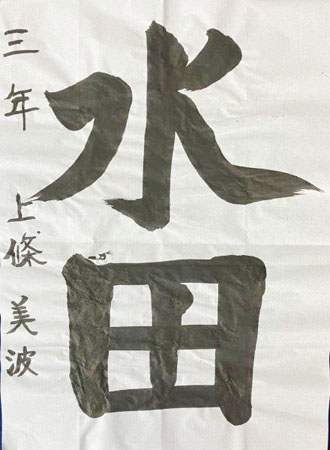 水田
三年 上條美波